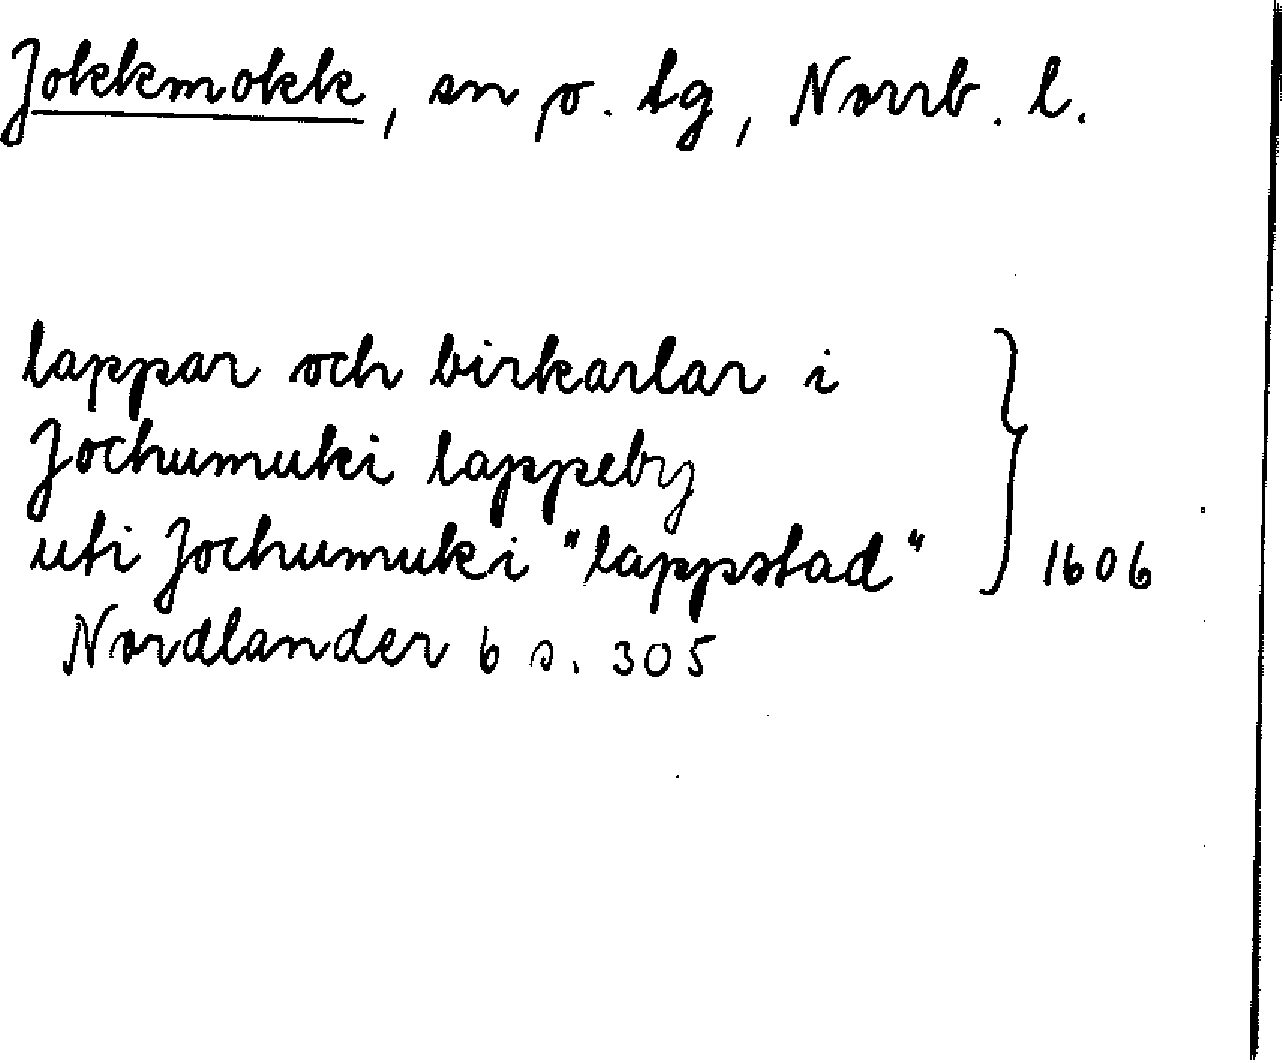 Jokkmokk, sn o. tg, Norrb. l.
lappar och birkarlar i
Jochumuki lappeby
uti Jochumuki "lappstad" } 1606
Nordlander 6 s. 305